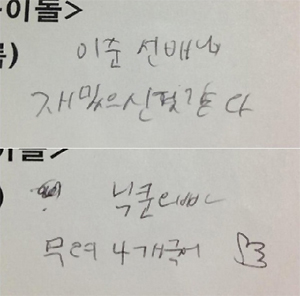 이돌>
이준 선배님
재밌으신것같다
이돌>
닉쿤오빠
무려 4개국어